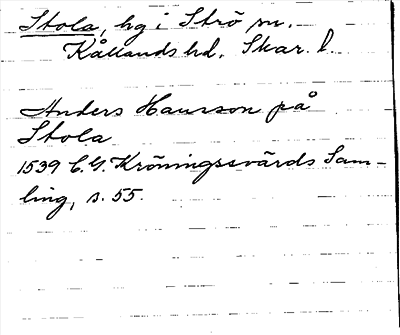 Stola, hg i Strö sn.
Kållands hd. Skar. l.
Anders Hansson på
Stola
1539 C. G. Kröningssvärds Sam-
ling, s. 55.